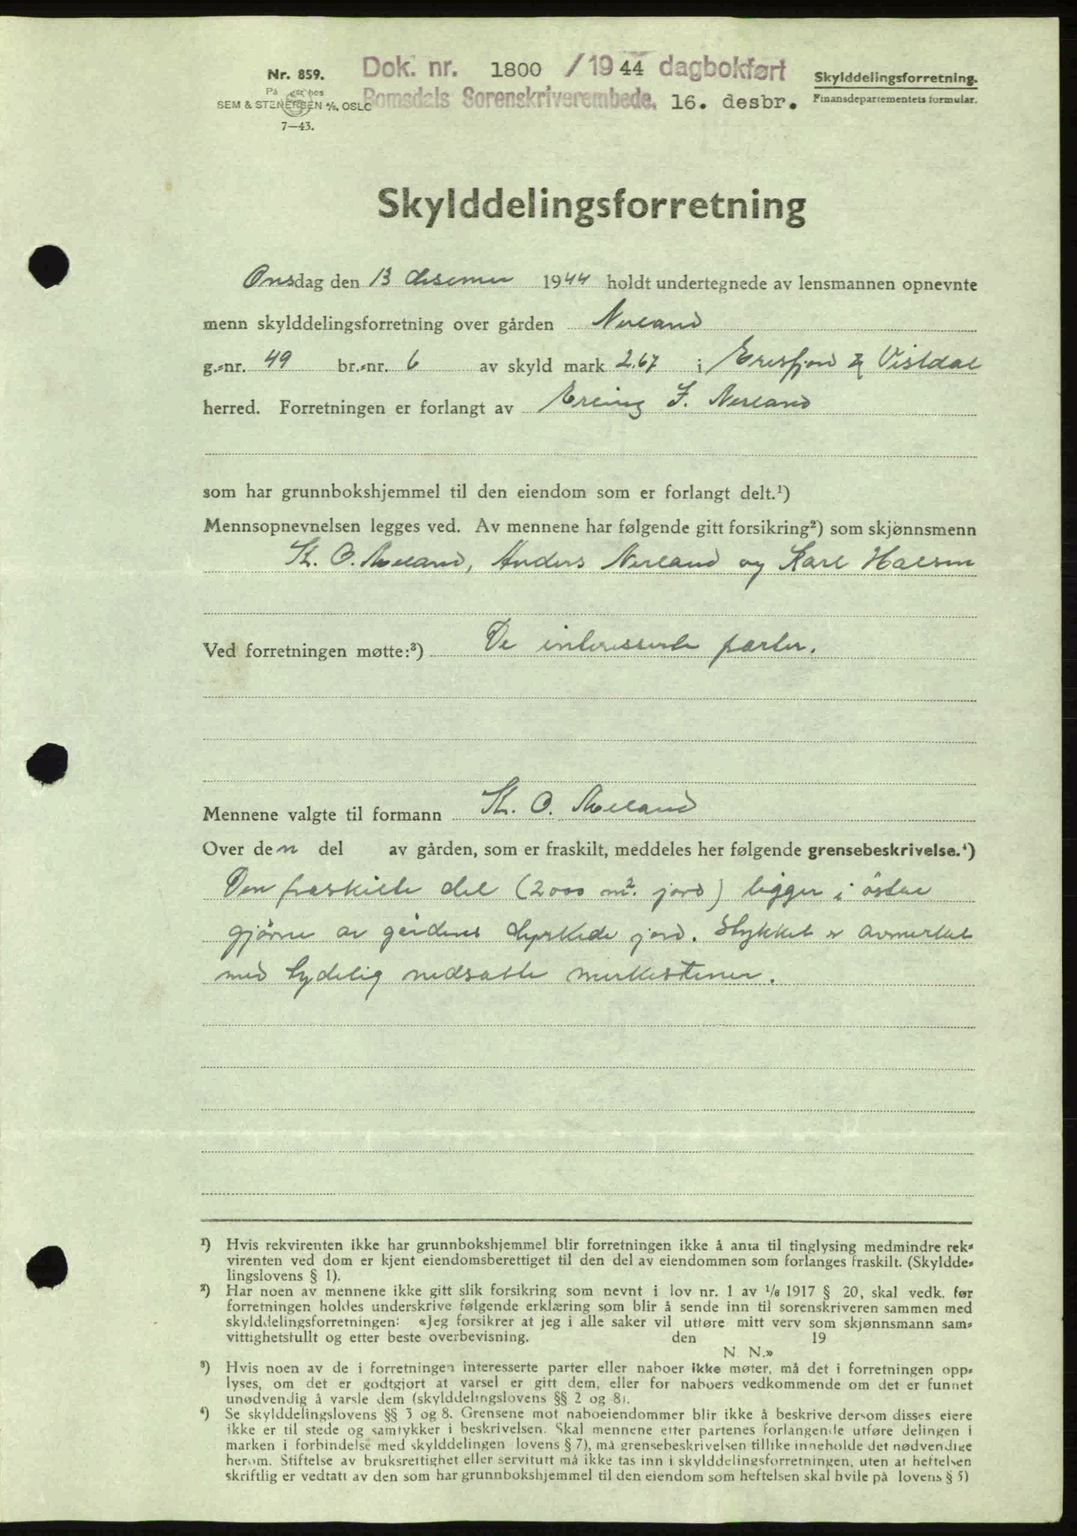 Nr. 859.
På lager hos
SEM & STENERSEN A/S, OSLO
7—43.
Dok. nr. 1800 /1944 dagbokført
Romsdals Sorenskriverembede, 16. desbr.
Skylddelingsforretning.
Finansdepartementets formular.
Skylddelingsforretning
Onsdag den 13 desember 1944 holdt undertegnede av lensmannen opnevnte
menn skylddelingsforretning over gården Nerland
g.-nr. 49 br.-nr. 6 av skyld mark 2.67 i Eresfjord & Vistdal
herred. Forretningen er forlangt av Erling J. Nerland
som har grunnbokshjemmel til den eiendom som er forlangt delt.¹)
Mennsopnevnelsen legges ved. Av mennene har følgende gitt forsikring²) som skjønnsmenn
O. Meland, Anders Nerland og Karl Halsen
Ved forretningen møtte:³) De interesserte parter.
Mennene valgte til formann O. Meland
Over den del av gården, som er fraskilt, meddeles her følgende grensebeskrivelse.⁴)
Den fraskilte del (2000 m². jord) ligger i östre
gjörne av gårdens dyrkede jord. Stykket er avmerket
med tydelig nedsatte merkestener.
¹) Hvis rekvirenten ikke har grunnbokshjemmel blir forretningen ikke å anta til tinglysing medmindre rek-
virenten ved dom er kjent eiendomsberettiget til den del av eiendommen som forlanges fraskilt. (Skyldde-
lingslovens § 1).
²) Har noen av mennene ikke gitt slik forsikring som nevnt i lov nr. 1 av 1/6 1917 § 20, skal vedk. før
forretningen holdes underskrive følgende erklæring som blir å sende inn til sorenskriveren sammen med
skylddelingsforretningen: «Jeg forsikrer at jeg i alle saker vil utføre mitt verv som skjønnsmann sam-
vittighetsfullt og etter beste overbevisning. den 19
N. N.»
³) Hvis noen av de i forretningen interesserte parter eller naboer ikke møter, må det i forretningen opp-
lyses, om det er godtgjort at varsel er gitt dem, eller for naboers vedkommende om det er funnet
unødvendig å varsle dem (skylddelingslovens §§ 2 og 8).
⁴) Se skylddelingslovens §§ 3 og 8. Grensene mot naboeiendommer blir ikke å beskrive dersom disses eiere
ikke er til stede og samtykker i beskrivelsen. Skal mennene etter partenes forlangende utføre delingen i
marken i forbindelse med skylddelingen lovens § 7), må grensebeskrivelsen tillike inneholde det nødvendige
herom. Stiftelse av bruksrettighet eller servitutt må ikke tas inn i skylddelingsforretningen, uten at heftelsen
skriftlig er vedtatt av den som har grunnbokshjemmel til den eiendom som heftelsen skal hvile på lovens § 5)